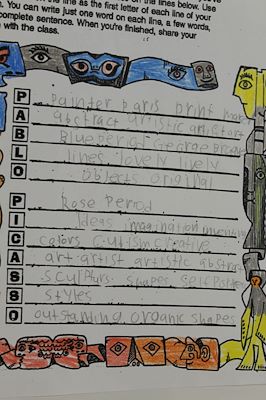 the first letter of each line of your
You can write just one word on each line, a few words,
complete sentence. When you're finished, share your
with the class.
P painter paris print maker
A abstract artistic artist art
B Blueperiod George Braque
L lines lovely lively
O objects original
P Rose Period
I Ideas imagination inventing
C colors cubism creative
A art artist artistic abstract
S sculpturs shapes self portr
S styles
O outstanding organic shapes